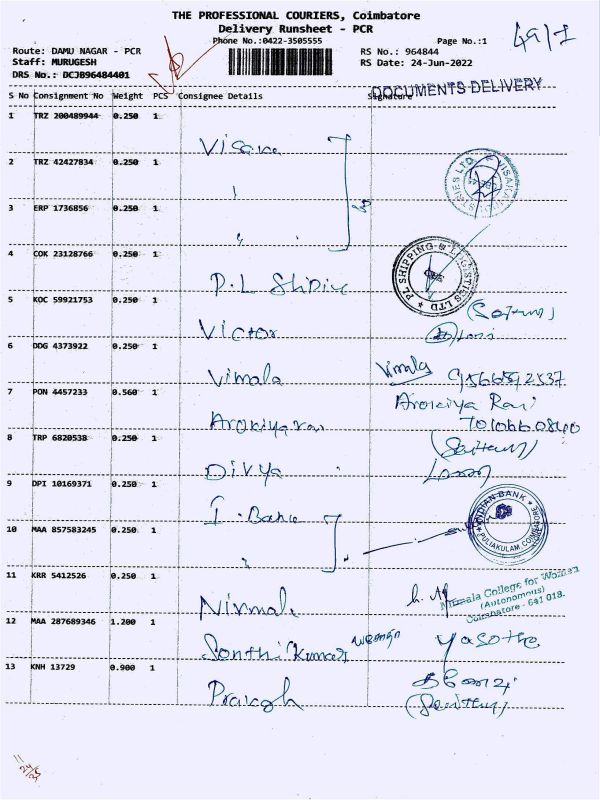 THE PROFESSIONAL COURIERS, Coimbatore
Delivery Runsheet - PCR
Phone No.:0422-3505555
Page No.:1
49/1
Route: DAMU NAGAR - PCR
RS No.: 964844
Staff: MURUGESH
RS Date: 24-Jun-2022
DRS No.: DCJB96484401
DOCUMENTS DELIVERY
S No Consignment No Weight PCS Consignee Details Signature
1 TRZ 200489944 0.250 1
Visaka
2 TRZ 42427834 0.250 1
3 ERP 1736856 0.250 1
4 COK 23128766 0.250 1
P.L Shipin
PL SHIPPING & LOGISTICS LTD
5 KOC 59921753 0.250 1
Victor
6 DDG 4373922 0.250 1
Vimala
Vimala
7 PON 4457233 0.560 1
Arokiyaraj
Arokiya Raj
8 TRP 6820538 0.250 1
Divya
9 DPI 10169371 0.250 1
I. Bank
INDIAN BANK
PULIAKULAM COIMBATORE
10 MAA 857583245 0.250 1
11 KRR 5412526 0.250 1
Nirmala
Nirmala College for Women
(Autonomous)
Coimbatore - 641 018.
12 MAA 287689346 1.200 1
Santhi Kumar
Yasotha
13 KNH 13729 0.900 1
Prakash